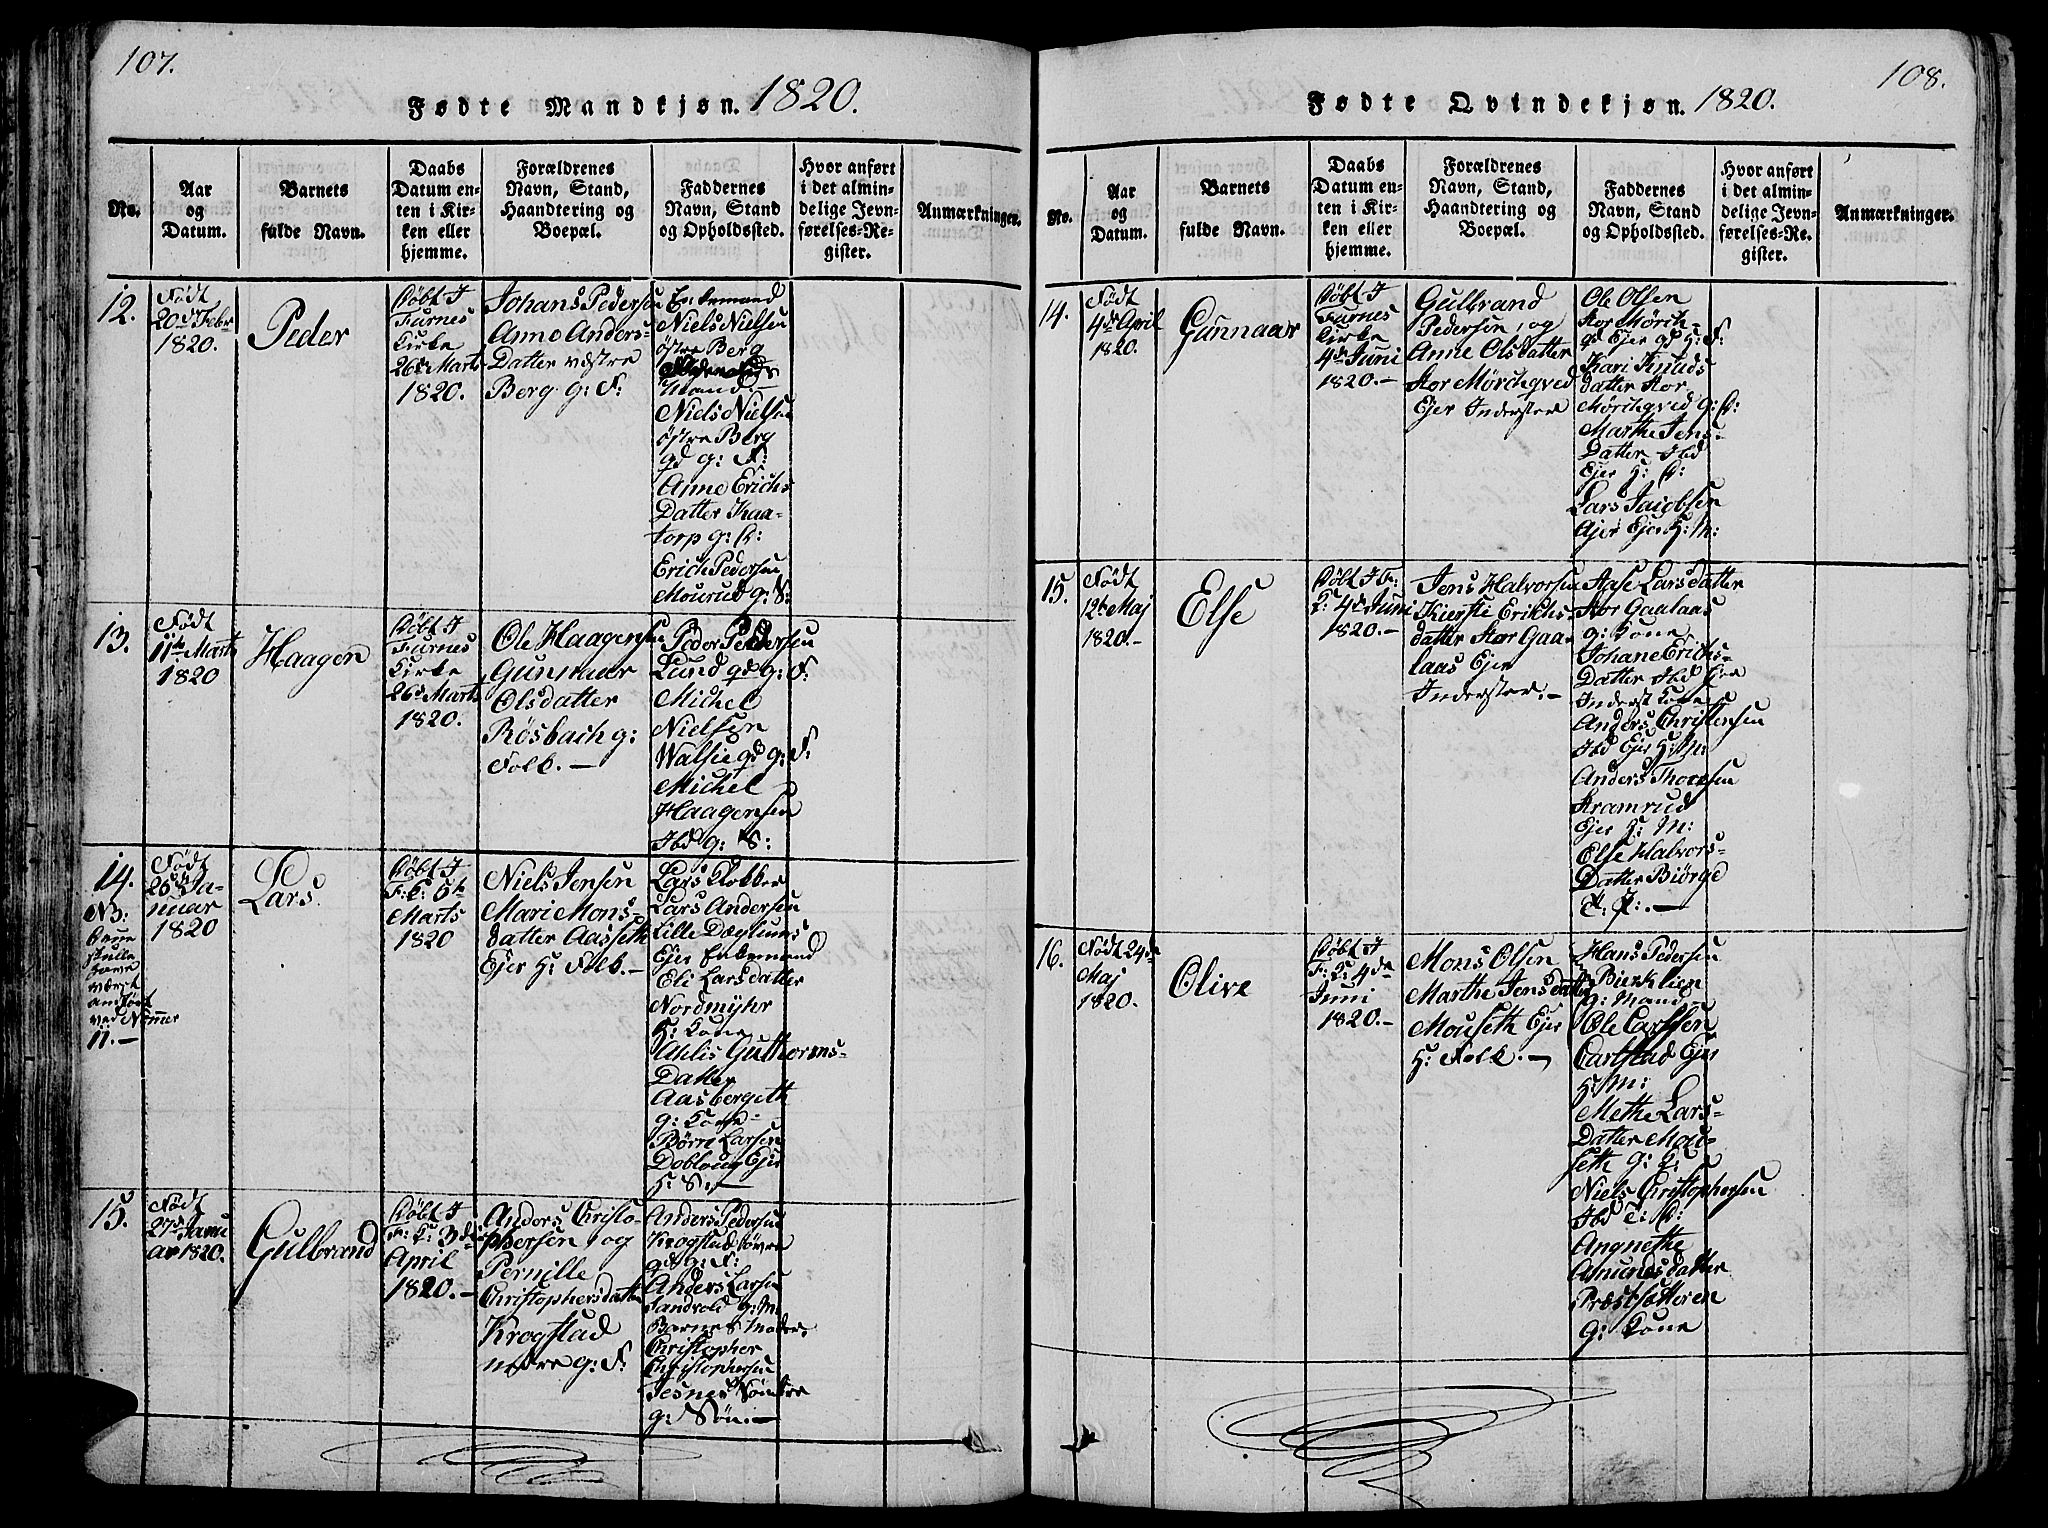 107.
Fødte Mandkjøn. 1820.
No.
Aar
og
Datum.
Barnets
fulde Navn.
Daabs
Datum en-
ten i Kir-
ken eller
hjemme.
Forældrenes
Navn, Stand,
Haandtering og
Boepæl.
Faddernes
Navn, Stand
og Opholdssted.
Hvor anført
i det almin-
delige Jevn-
førelses-Re-
gister.
Anmærkninger.
12.
Født
20de Febr
1820.
Peder
Døbt I
Furnes
Kirke
26de Marts
1820.
Johans Pedersen
Anne Anders-
Datter vestre
Berg g: F:
Enkemand
Niels Nielsen
østre Berg
Mand.-
Niels Nielsen
østre Berg
gd g: F:
Anne Erichs
Datter Kaa-
torp g: K:
Erich Pedersen
Mourud g: S:
13.
Født
11te Marts
1820
Haagen
Døbt I
Furnes
Kirke
26de Marts
1820.
Ole Haagensen
Gunnaur
Olsdatter
Røsbach g:
Folk. -
Peder Pedersen
Lund gd g: F:
Michel
Nielsen
Walsie gd g: F:
Michel
Haagensen
Ibd g: S:
14.
NB:
skulle
have
været
anført
ved Nummer
11. -
Født
26de Ja-
nuar
1820
Lars.
Døbt I
F: K: 5te
Marts
1820
Niels Jensen
Mari Mons-
datter Aasseth
Ejer H: Folk. -
Lars Klokker
Lars Andersen
Lille Døglum
Ejer Enkemand
Eli Larsdatter
Nordmyhr
H: Kone
Ahlis Guthorms-
Datter
Aasbergeth
g: Kone
Børre Larsen
Dobloug Ejer
H: S: -
15.
Født
27de Janu
ar 1820.
Gulbrand
Døbt I
F: K: 3die
April
1820. -
Anders Christo-
phersen, og
Pernille
Christophersdatter
Krogstad
nedre g: F:
Anders Pedersen
Krogstad øvre
gd g: F:
Anders Larsen
Sandvold g: M:
Barnets Moder,
Christopher
Christophersen
Jesnes Søndre
g: Søn. -
108.
Fødte Qvindekjøn. 1820.
No.
Aar
og
Datum.
Barnets
fulde Navn.
Daabs
Datum en-
ten i Kir-
ken eller
hjemme.
Forældrenes
Navn, Stand,
Haandtering og
Boepæl.
Faddernes
Navn, Stand
og Opholdssted.
Hvor anført
i det almin-
delige Jevn-
førelses-Re-
gister.
Anmærkninger.
14.
Født
4de April
1820.
Gunnaar
Døbt I
Furnes
Kirke
4de Juni
1820. -
Gulbrand
Pedersen, og
Anne Olsdatter
Stor Mørchqved
Ejer Inderster
Ole Olsen
Stor Mørch-
qd Ejer gd H: F:
Kari Knuds
datter Stor
Mørchqved g: K:
Marthe Jens-
Datter Ibd
Ejer H: K:
Lars Jacobsen
Ajer Ejer H: M:
15.
Født
12te Maj
1820. -
Else
Døbt I F:
K: 4de Juni
1820. -
Jens Halvorsen
Kiersti Erichs-
datter Stor Gaa-
laas Ejer
Inderster. -
Aase Larsdatter
Stor Gaalaas
g: Kone
Johane Erichs-
Datter Ibd Ejer
Inderst Kone
Anders Christensen
Ibd Ejer H: M:
Anders Thoresen
Kramrud
Ejer H: M:
Else Halvors-
Datter Biørge
16.
Født 24de
Maj
1820.
Olive
Døbt I
F: K: 4de
Juni
1820. -
Mons Olsen
Marthe Jensdatter
Mouseth Ejer
H: Folk. -
Hans Pedersen
Bierklien
g: Mand
Ole Carlsen
Carlstad Ejer
H: M:
Methe Lars-
Datter Mou-
seth g: K:
Niels Christophersen
Ibd E: K:
Angnethe
Amundsdatter
Præstsætteren
g: Kone